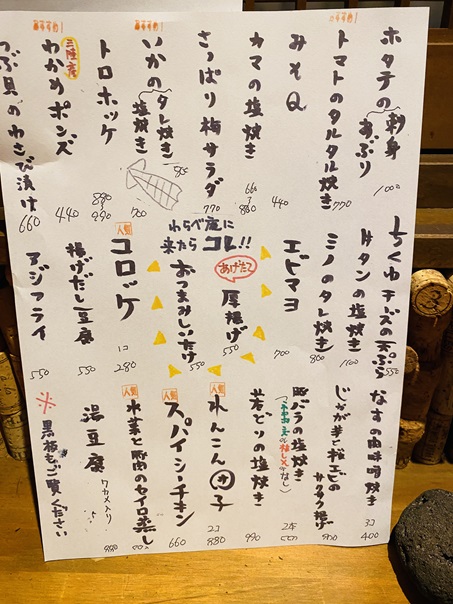 ホタテの刺身
あぶり
1000
おすすめ!
トマトのタルタル焼き
770
みそQ
440
カマの塩焼き
660
880
さっぱり梅サラダ
770
いかのタレ焼き
塩焼き
おすすめ!
トロホッケ
990
三陸産
わかめポンズ
440
おすすめ!
つぶ貝のわさび漬け
660
ちくわチーズの天ぷら
550
牛タンの塩焼き
1100
ミノのタレ焼き
800
エビマヨ
700
わらべ庵に
来たらコレ!!
あげたて
厚揚げ
550
おつまみしいたけ
550
人気
コロッケ
1コ
280
揚げだし豆腐
550
アジフライ
550
なすの肉味噌焼き
3コ
400
じゃが芋と桜エビの
サクサク揚げ
豚バラの塩焼き
2本
若どりの塩焼き
990
人気
れんこん団子
2コ
880
人気
スパイシーチキン
660
人気
水菜と豚肉のセイロ蒸し
湯豆腐
ワカメ入り
※黒板もご覧ください